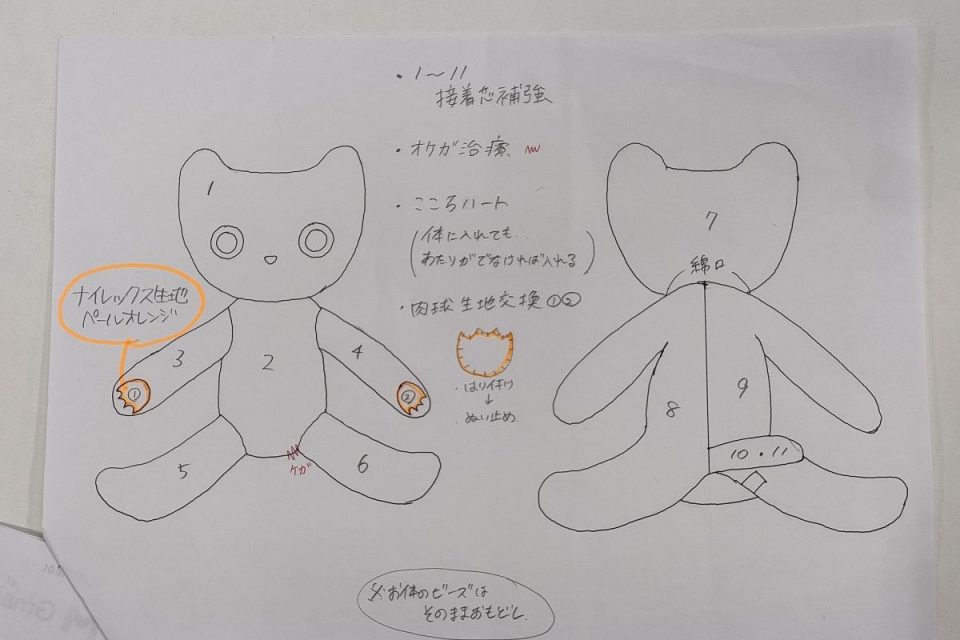 ・1〜11
接着芯補強
・オケガ治療
・こころハート
(体に入れても..
わたりがでなければ入れる)
・肉球生地交換①②
・はりイキリ
↓
・ぬい止め
ナイレックス生地
ペールオレンジ
1
2
3
4
5
6
①
②
ケガ
7
綿口
8
9
10・11
※お体のビーズは
そのままおもどし